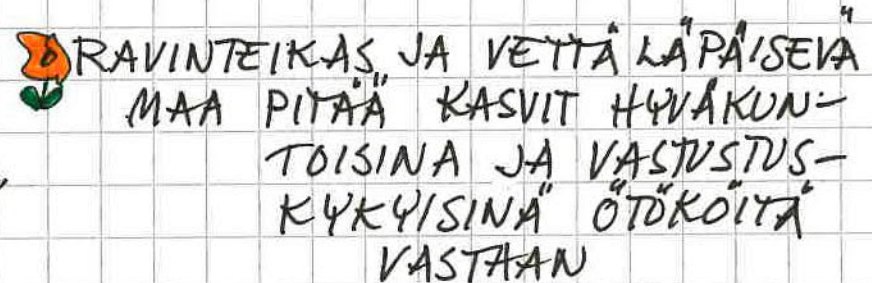 RAVINTEIKAS JA VETTÄ LÄPÄISEVÄ
MAA PITÄÄ KASVIT HYVÄKUN-
TOISINA JA VASTUSTUS-
KYKYISINÄ ÖTÖKÖITÄ
VASTAAN